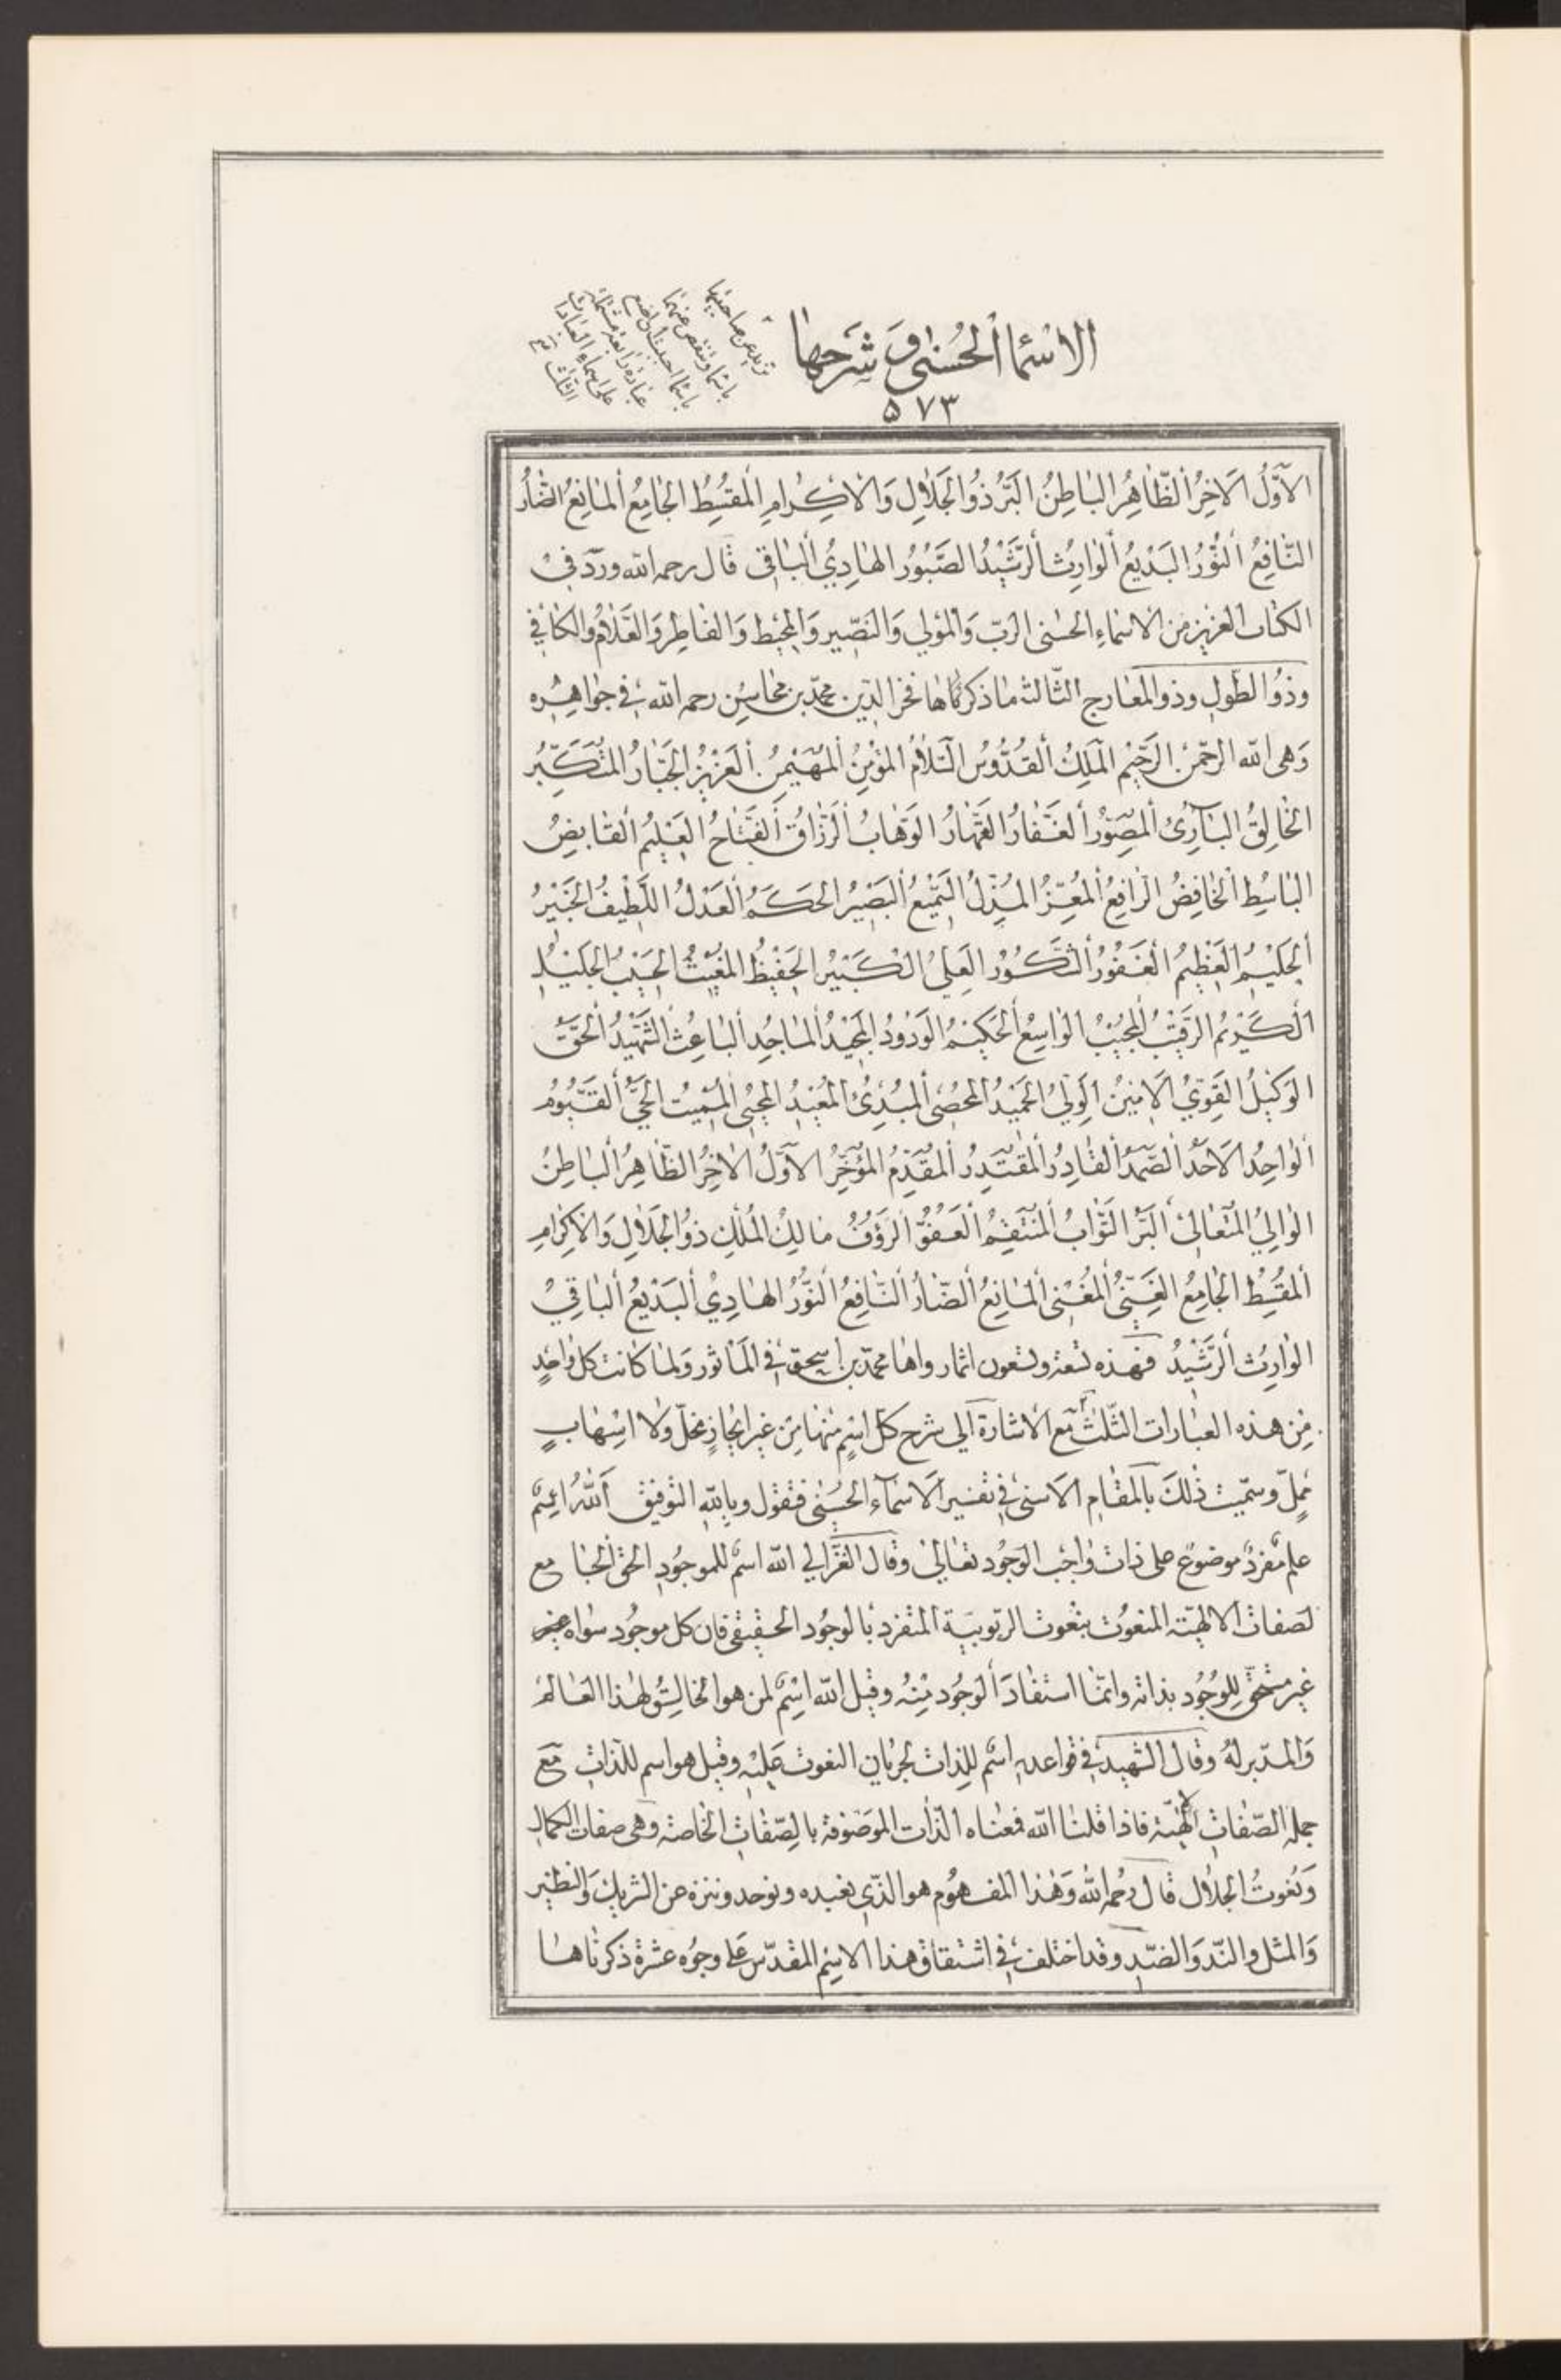 الاسماالحُسنیٰ وَ شَرحهٰا
۵۷۳
تزيد عن صاحبتها
باسماء وتنقص عنهما
باسماء احببت ان اضع
عبارة رابعة مشتملة
على اسماء العبارات
الثلث تم
الاَوَّلُ الاَخِرُ الظّاهِرُ البٰاطِنُ البَّرُ ذُوالجَلاٰلِ وَالاكِرامِ المُقسِطُ الجٰامِعُ المٰانِعُ الضّارُ
النّافِعُ النُّورُ البَدٖيعُ الوٰارِثُ الرَّشٖيدُ الصَّبُورُ الهٰادِيُ الباقٖى قال رحمه الله وورد فى
الكتاب العزيز من الاسماءِ الحسنى الرّب وَالمَولى وَالنَصّير وَالمحيط وَالفاطِر وَالعَلاّم والكافى
وذُوا الطَّولِ وذوالمعارج الثّالث ماذكرتماها فخر الدّين محمّد بن محاسِن رحمه الله فى جواهره
وَهى الله الرحمٰنُ الرّحٖيم المَلِكُ القُدُّوسُ السَّلاٰمُ المُؤمِنُ المُهَيْمِنُ العَزيزُ الجَبّارُ المُتَكَبِّرُ
الخٰالِقُ البٰآرِئُ المُصَوّرُ الغَفّارُ القَهّارُ الوَهّابُ الرَزّاقُ الفَتّاحُ العَلٖيمُ القٰابِضُ
البٰاسِطُ الخٰافِضُ الرّافِعُ المُعِزُّ المُذِلُّ السَّمٖيعُ البَصٖيرُ الحَكَمُ العَدْلُ اللَّطٖيفُ الخَبٖيرُ
الحَلٖيمُ العَظٖيمُ الغَفُورُ الشَّكُورُ العَلِىُّ الكَبٖيرُ الحَفٖيظُ المُغٖيثُ الحَسٖيبُ الجَلٖيلُ
الكَرٖيمُ الرَّقٖيبُ المُجٖيبُ الوٰاسِعُ الحَكٖيمُ الوَدُودُ المَجٖيدُ المٰاجِدُ البٰاعِثُ الشَّهٖيدُ الحَقُّ
الوَكٖيلُ القَوِيُّ الاَمٖينُ الوَلِيُّ الحَمٖيدُ المُحصٖى المُبْدِئُ المُعٖيدُ المُحْيٖى المُمٖيتُ الحَيُّ القَيُّومُ
الوٰاحِدُ الاَحَدُ الصَّمَدُ القٰادِرُ المُقتَدِرُ المُقَدِّمُ المُؤَخِّرُ الاَوَّلُ الاٰخِرُ الظّاهِرُ البٰاطِنُ
الوٰالِيُ المُتَعٰالىٖ البَّرُ التَوّابُ المُنتَقِمُ العَفُوُّ الرَؤُفُ مٰالِكُ المُلْكِ ذُوالجَلاٰلِ وَالاِكرٰامِ
المُقسِطُ الجٰامِعُ الغَنِيُّ المُغْنٖى المٰانِعُ الضّارُ النّافِعُ النُّورُ الهٰادِيُ البَدٖيعُ البٰاقٖي
الوٰارِثُ الرَّشٖيدُ فهذه تسعة وتسعون اسما رواها محمّد بن اسحق فى المَأثور وَلما كانت كل واحِدٍ
مِن هذه العبارات الثّلث مع الاشارة الى شرح كل اسْمٍ منها مِن غير ايجازٍ مخلّ ولا اسهابٍ
مُمِلّ وسمّيت ذلكَ بالمَقامِ الاسنى فى تفسير الاسمآء الحُسنى فنقول وبِاللهِ التّوفيق اَللهُ اسمٌ
علم مفردٌ موضوع على ذات واجب الوجُود تعالى وقال الغَزّالى الله اسمٌ للموجُودِ الحَقّ الجٰامع
لصَفات الالهيّة المنعُوت بنعُوت الربُوبيَة المتفرد بالوجُود الحقيقى فان كل موجُود سواه
غير مُستحقٍّ لِلوُجُود بذاته وانمّا استفادَ الوجُود مِنهُ وقيل الله اسْمٌ لمن هو الخالِق لهٰذا العٰالم
وَالمدّبر لهُ وقال الشهيد فى قواعده اسمٌ للِذات لجريانِ النعوت عَليْهِ وقيل هو اسم للذّاتِ مَعَ
جملة الصّفاتِ الالٰهيّة فاذا قلنا الله فمعناه الذّات الموصُوفة بالصِّفاتِ الخاصّة وَهى صفات الكمالِ
وَنعُوتُ الجلاٰل قال رحمه الله وَهذا المفهُوم هو الذّى نعبده ونوحد وننزه عن الشريك وَالنّظير
وَالمثل والنّد وَالضّد وقد اختلف فى اشتقاق هذا الاسِم المقدّس عَلى وجوُه عشرة ذكرناها